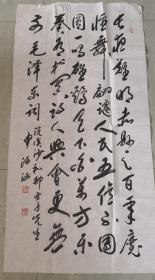 长夜难明赤县天百年魔
怪舞翩跹人民五亿不团
圆一唱雄鸡天下白万方乐
奏有于阗诗人兴会更无
前毛泽东词浣溪沙和柳亚子先生